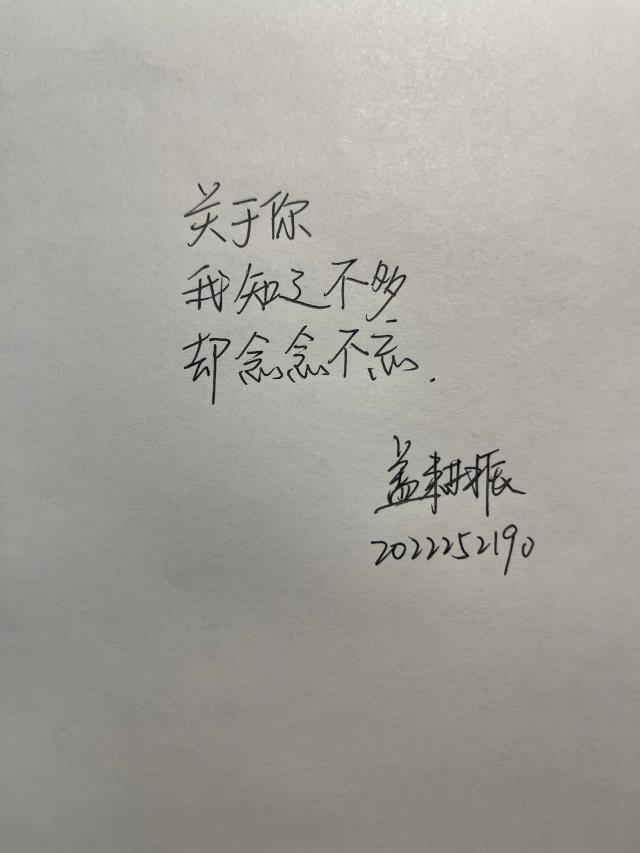 关于你
我知之不多
却念念不忘.
盖耕振
2022252190